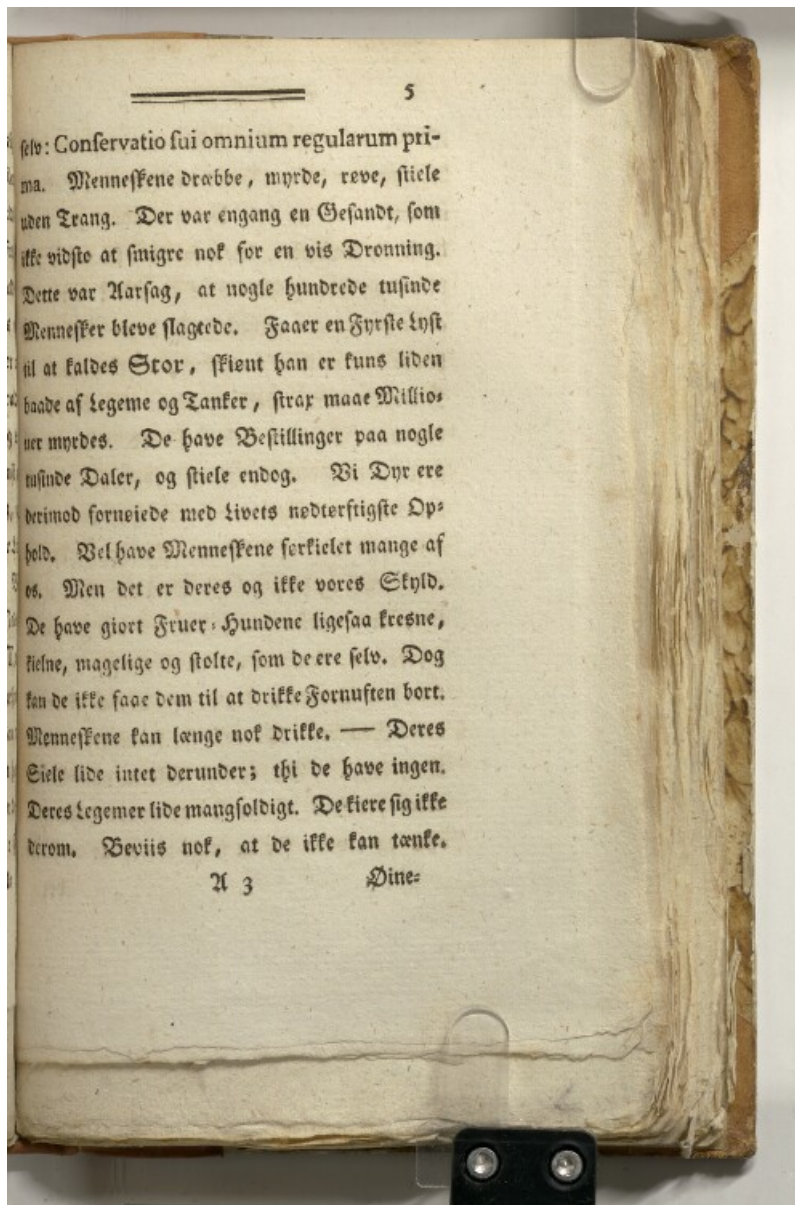 5
selv: Conservatio sui omnium regularum pri-
ma. Menneskene dræbbe, myrde, røve, stiele
uden Trang. Der var engang en Gesandt, som
ikke vidste at smigre nok for en vis Dronning.
Dette var Aarsag, at nogle hundrede tusinde
Mennesker bleve slagtede. Faaer en Fyrste Lyst
til at kaldes Stor, skiønt han er kuns liden
baade af Legeme og Tanker, strax maae Millio-
ner myrdes. De have Bestillinger paa nogle
tusinde Daler, og stiele endog. Vi Dyr ere
derimod fornøiede med Livets nødtørftigste Op-
hold. Vel have Menneskene forkielet mange af
os. Men det er deres og ikke vores Skyld.
De have giort Fruer-Hundene ligesaa kresne,
kielne, magelige og stolte, som de ere selv. Dog
kan de ikke faae dem til at drikke Fornuften bort.
Menneskene kan længe nok drikke. — Deres
Siele lide intet derunder; thi de have ingen.
Deres Legemer lide mangfoldigt. De kiere sig ikke
derom. Beviis nok, at de ikke kan tænke.
A 3 Øine-